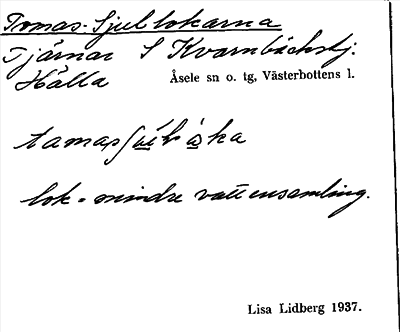 Tomas-Sjul lokarna
Tjärnar S Kvarnbäckstj.
Hälla Åsele sn o. tg, Västerbottens l.
lok = mindre vattensamling.
Lisa Lidberg 1937.